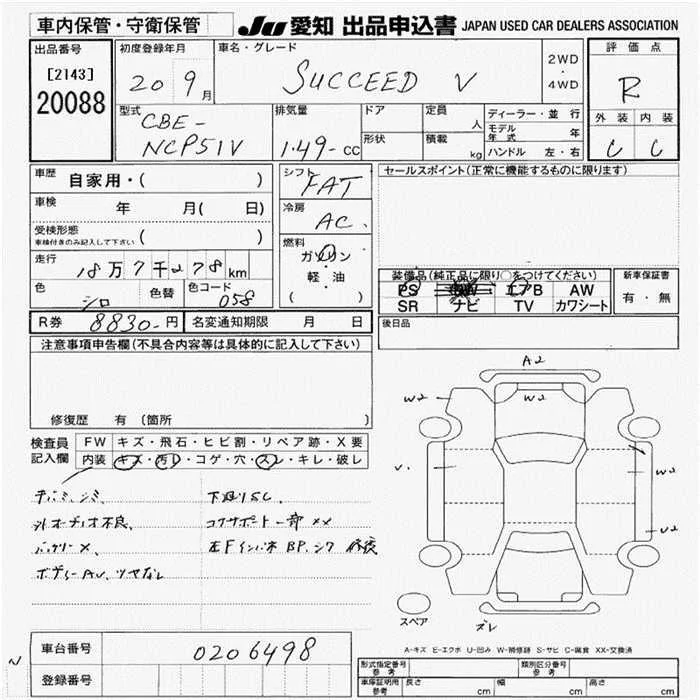 車内保管・守衛保管
JU 愛知 出品申込書 JAPAN USED CAR DEALERS ASSOCIATION
出品番号
[2143]
20088
初度登録年月
20 9月
車名・グレード
SUCCEED V
2WD
・
4WD
評価点
R
外装 内装
C C
型式
CBE-
NCP51V
排気量
1.49- CC
ドア
形状
定員
人
積載
kg
ディーラー・並行
モデル年式 年
ハンドル 左・右
車歴
自家用・( )
車検 年 月( 日)
受検形態
車検付きのみ記入して下さい ( )
走行
18万7千278km
色
シロ
色替
色コード
058
シフト
FAT
冷房
AC
燃料
ガソリン
・
軽・油
( )
セールスポイント(正常に機能するものに限ります)
装備品(純正品に限り〇をつけてください)
PS PW エアB AW
SR ナビ TV カワシート
新車保証書
有・無
R券 8830-円
名変通知期限 月 日
後日品
注意事項申告欄(不具合内容等は具体的に記入して下さい)
修復歴 有 (箇所
検査員
記入欄
FW キズ・飛石・ヒビ割・リペア跡・X要
内装 キズ・汚レ・コゲ・穴・スレ・キレ・破レ
外オーディオ不良、
バッテリーX、
ボディーAU、ツヤなし
下廻りSC、
コアサポート一部XX
左Fインパネ BP、シワ 修復
A2
W2
W2
V.
W2
U2
スペア
ズレ
A-キズ E-エクボ U-凹み W-補修跡 S-サビ C-腐食 XX-交換済
車台番号
0206498
登録番号
N
形式指定番号
参考
類別区分番号
参考
車庫証明用
参考
長さ cm 幅 cm 高さ cm